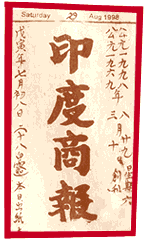 Saturday 29 Aug 1998
公元一九九八年 八月廿九日星期六
公元一九六九年 三月十
印度商報
戊寅年七月初八日